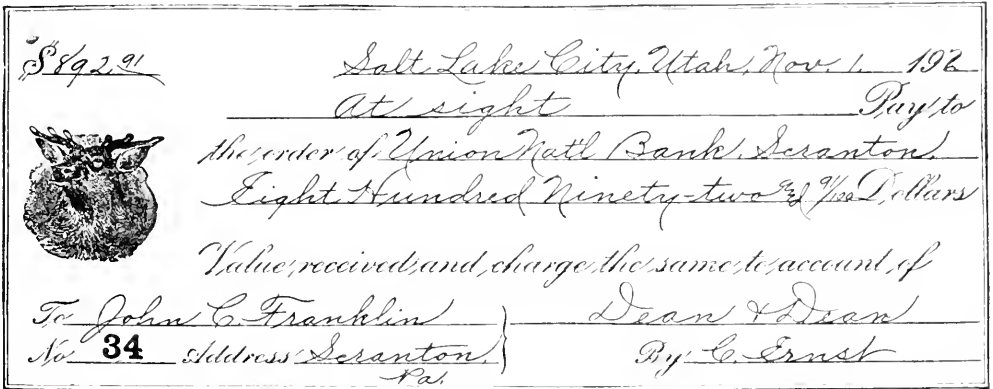 $892.91 Salt Lake City, Utah, Nov. 1. 192
At sight Pay to
the order of Union Nat'l Bank, Scranton.
Eight Hundred Ninety-two and 91/100 Dollars
Value received and charge the same to account of
To John C. Franklin Dean & Dean
No. 34 Address Scranton, By C. Ernst
Pa.